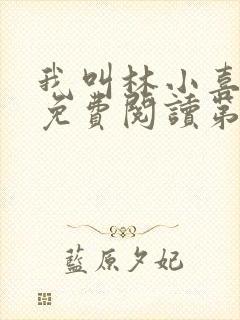 我叫林小喜
免費閱讀第
藍原夕妃